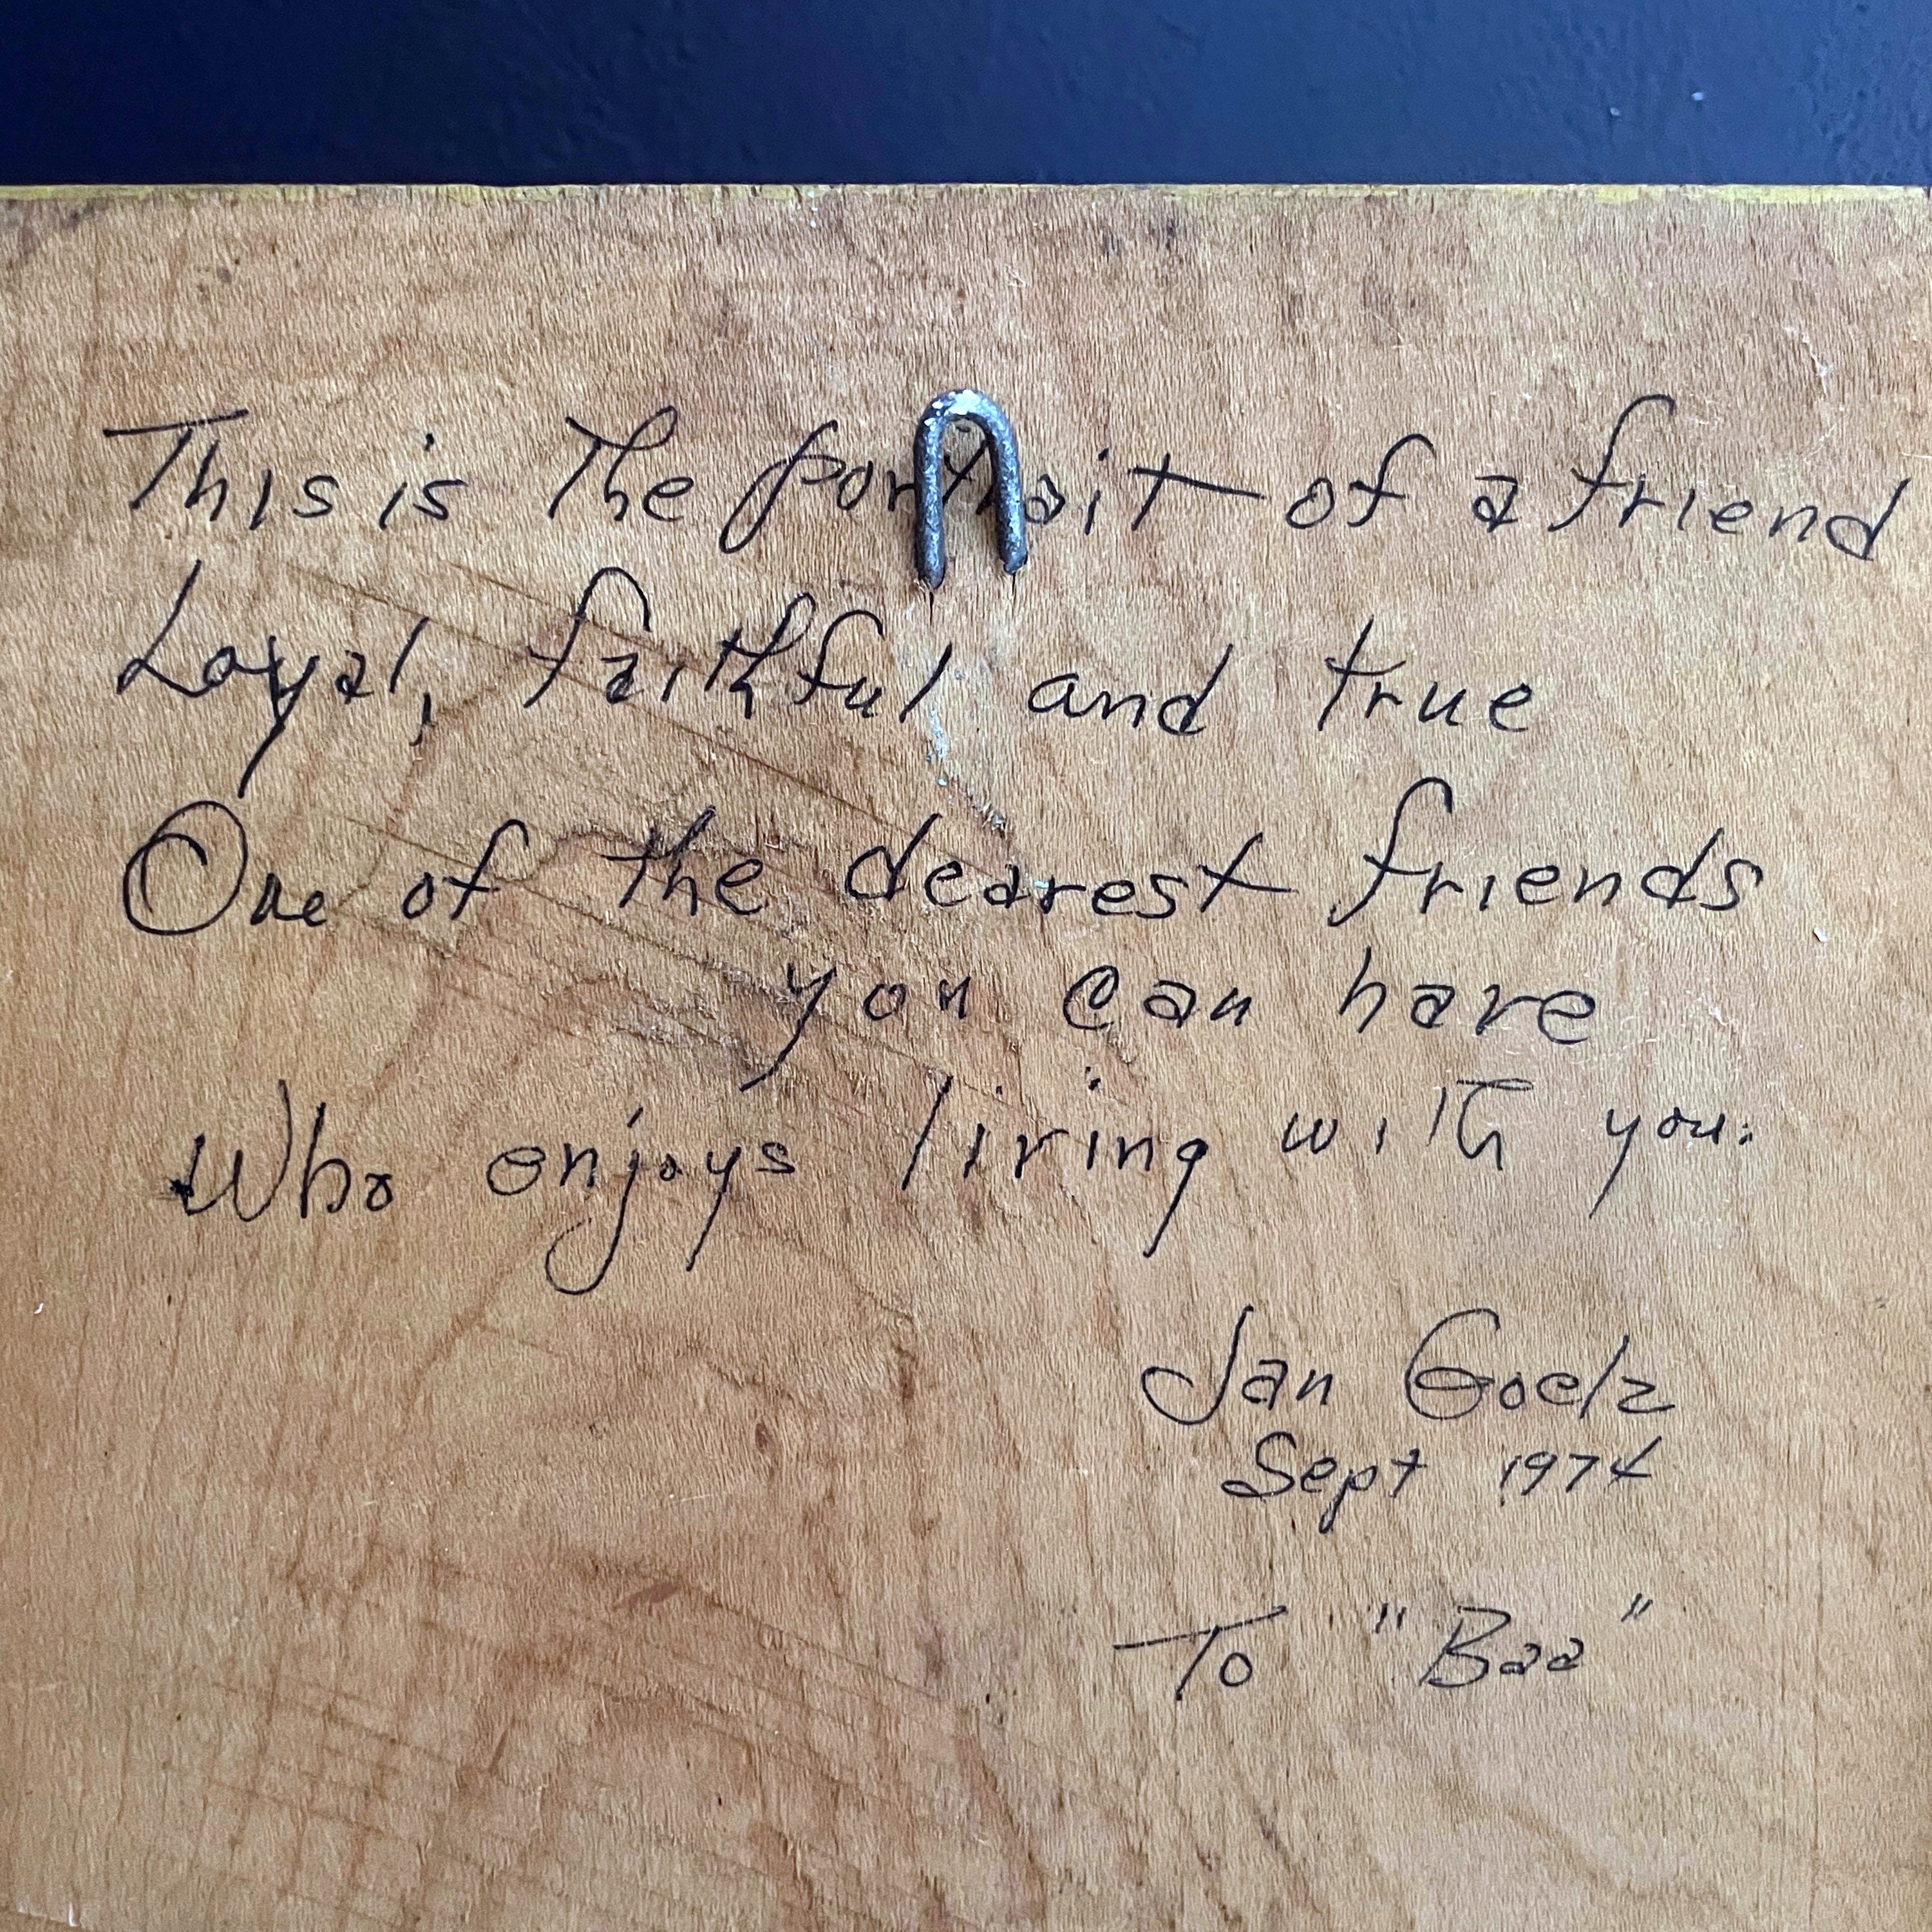 This is The portrait of a friend
Loyal, faithful and true
One of the dearest friends
you can have
Who enjoys living with you.
Jan Goelz
Sept 1974
To "Baa"